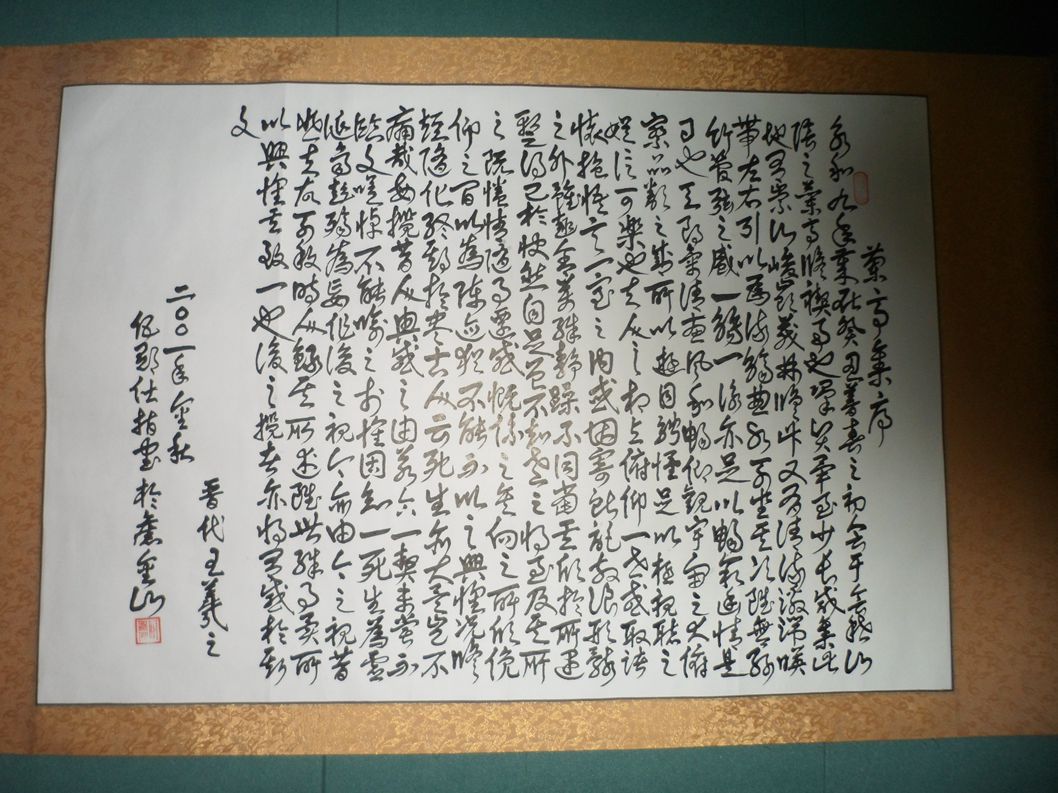 蘭亭集序
永和九年歲在癸丑暮春之初會于會稽山
陰之蘭亭脩禊事也群賢畢至少長咸集此
地有崇山峻嶺茂林脩竹又有清流激湍映
帶左右引以為流觴曲水列坐其次雖無絲
竹管弦之盛一觴一詠亦足以暢敘幽情是
日也天朗氣清惠風和暢仰觀宇宙之大俯
察品類之盛所以遊目騁懷足以極視聽之
娛信可樂也夫人之相與俯仰一世或取諸
懷抱悟言一室之內或因寄所託放浪形骸
之外雖趣舍萬殊靜躁不同當其欣於所遇
暫得已於快然自足曾不知老之將至及其所
之既惓情隨事遷感慨係之矣向之所欣俛
仰之間以為陳迹猶不能不以之興懷況脩
短隨化終期於盡古人云死生亦大矣豈不
痛哉每攬昔人興感之由若合一契未嘗不
臨文嗟悼不能喻之於懷固知一死生為虛
誕齊彭殤為妄作後之視今亦由今之視昔
悲夫故列敘時人錄其所述雖世殊事異所
以興懷其致一也後之攬者亦將有感於斯
文
晉代王羲之
二〇〇一年金秋
仕指書於舊金山